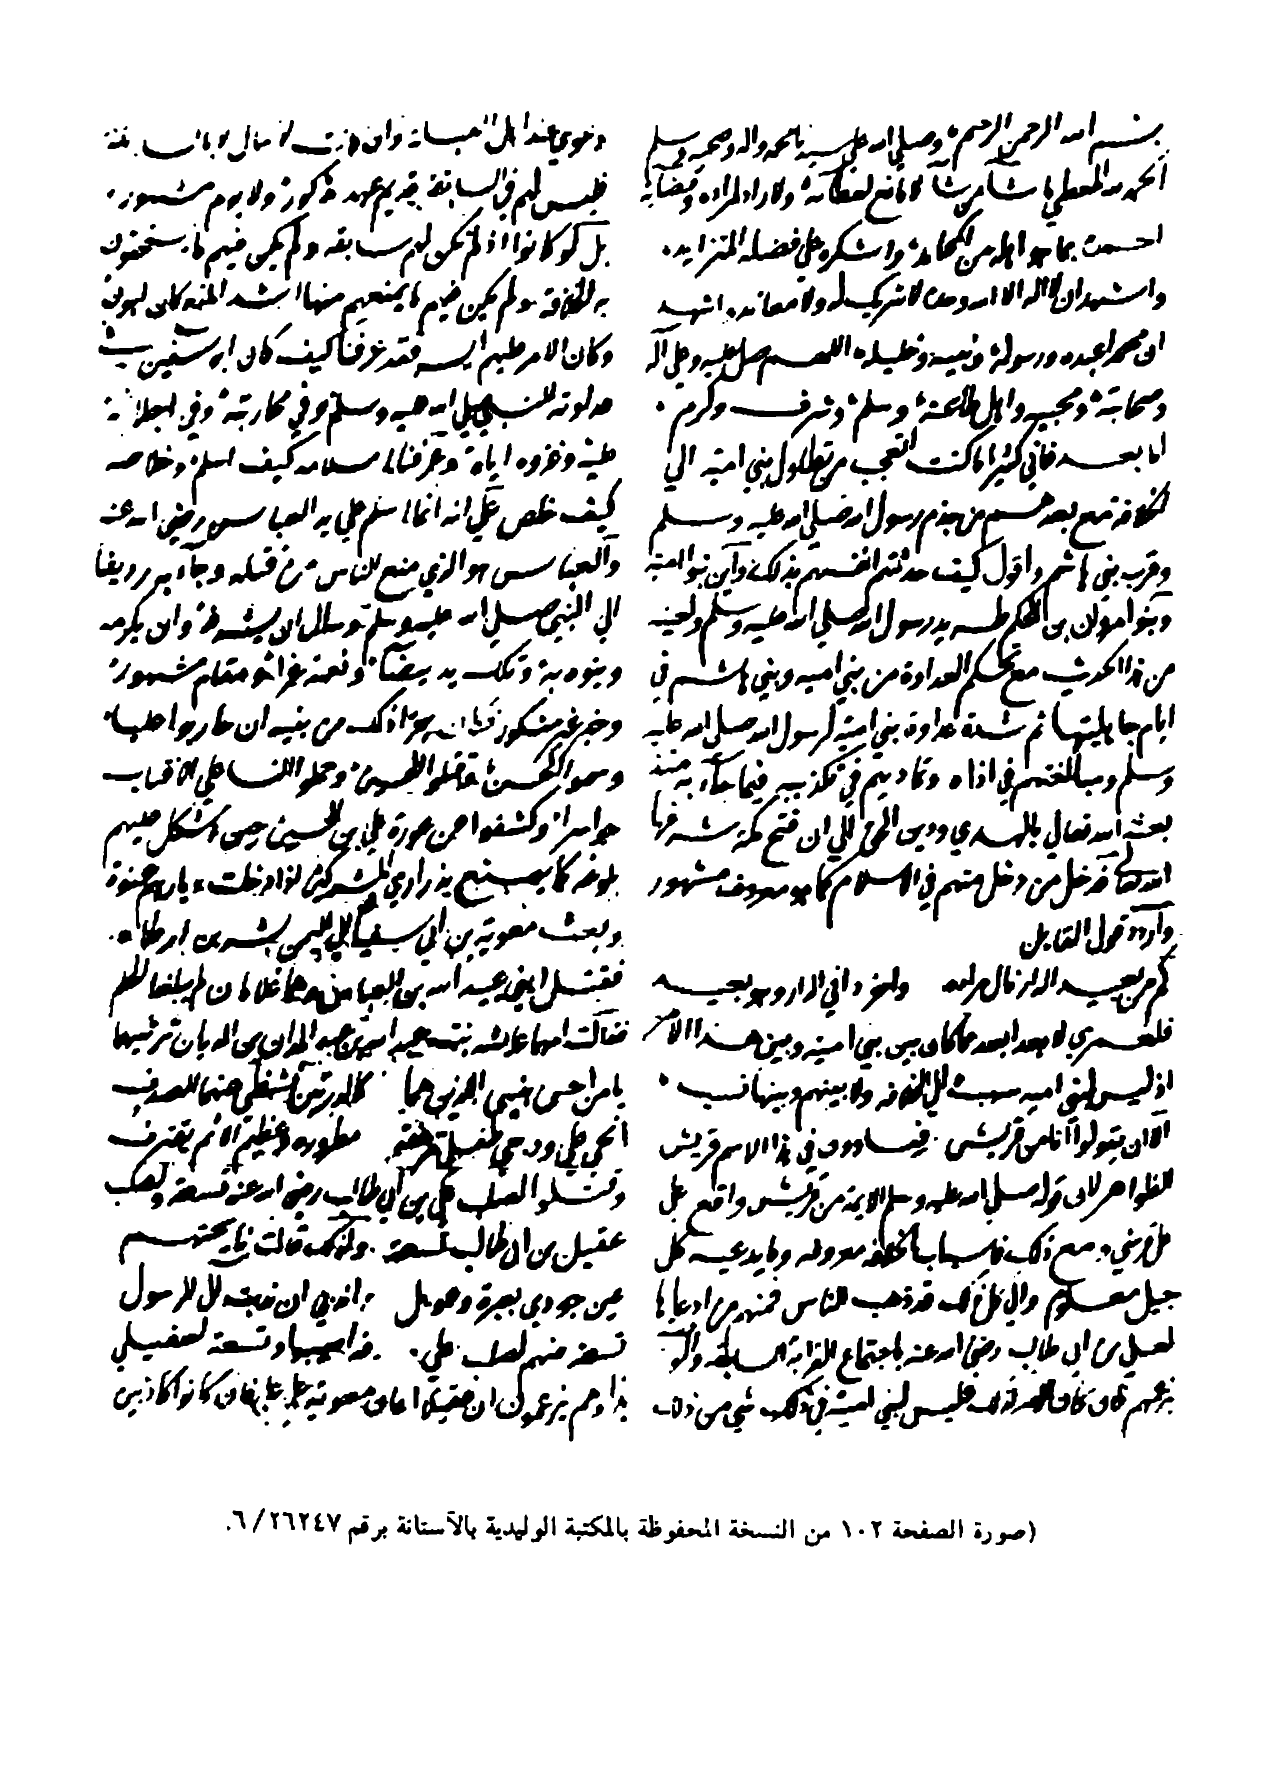 بسم الله الرحمن الرحيم وصلي الله علي سيدنا محمد واله وصحبه وسلم
الحمد لله المعطي ما شآ من شآ لا مانع لعطآئه ولا راد لمراده وقضآئه
احمده بما هو اهله من المحامد واشكره علي فضله المتزايد.
واشهد ان لا اله الا الله وحده لا شريك له ولا معاند. اشهد
ان محمدا عبده ورسوله ونبيه وخليله اللهم صل عليه وعلي آله
وصحابته ومحبيه واهل طاعته وسلم وشرف وكرم.
اما بعد فاني كثيرا ما كنت اتعجب من تطاول بني امية الي
الخلافة مع بعدهم من جذم رسول الله صلي الله عليه وسلم
وقرب بني هاشم واقول كيف حدثتهم انفسهم بذلك واين بنو امية
وبنوا مروان بن الحكم طريد رسول الله صلي الله عليه وسلم ولعينه
من هذا الحديث مع تحكم العداوة من بني اميه وبني هاشم في
ايام جاهليتها ثم شدة عداوة بني امية لرسول الله صلي الله عليه
وسلم ومبالغتهم في اذاه وتماديهم في تكذيبه فيما جآء به منذ
بعثه الله تعالي بالهدي ودين الحق الي ان فتح مكة شرفها
الله تعالي فدخل من دخل منهم في الاسلام كما هو معروف مشهور
وآردد قول القايل
كم من بعيد الدار نال مراده واخر داني الدار وهو بعيد
فلعمري لا بعد ابعد مما كان بين بني امية وبين هذا الامر
اذ ليس لبني اميه سبب الي الخلافه ولا بينهم وبينها نسب
الا ان يقولوا انا من قريش. فيساوون في هذا الاسم قريش
الظواهر لان قوله صلي الله عليه وسلم الايمة من قريش واقع علي
كل قرشي. مع ذلك فاسباب الخلافه معروفه وما يدعيه كل
جيل معلوم والي كل ذلك قد ذهب الناس فمنهم من ادعاها
لعلي بن ابي طالب رضي الله عنه باجتماع القرابة والسابقه والوصية
بزعمهم فان كان الامر كذلك فليس لبني امية في ذلك شي من ذلك
فليس لهم في السابقة قديم عهد مذكور ولا يوم مشهور.
بل لو كانوا اذ لم تكن لهم سابقه ولم يكن فيهم ما يستحقون
به الخلافة ولم يكن فيهم ما يمنعهم منها اشد المنع كان اهون
وكان الامر عليهم ايسر فقد عرفنا كيف كان ابو سفين في
عداوته للنبي صلي الله عليه وسلم وفي محاربته وفي اجلابه
عليه وغزوه اياه وعرفنا اسلامه كيف اسلم وخلاصه
كيف خلص علي انه انما اسلم علي يد العباس رضي الله عنه
والعباس هو الذي منع الناس من قتله وجآء به رديفا
الي النبي صلي الله عليه وسلم وسال ان يشرفه وان يكرمه
وينوه به وتلك يد بيضآء ونعمة غراء ومقام مشهور
وخبر غير منكور فكان جزا ذلك من بنيه ان حاربوا عليا
وسموا الحسن وقتلوا الحسين وحملوا النسا علي الاقتاب
حواسرا وكشفوا عن عورة علي بن الحسين حين اشكل عليهم
بلوغه كما يصنع بذراري المشركين اذا دخلت ديارهم عنوة
وبعث معوية بن ابي سفيان الي اليمن بسر بن ارطاه.
فقتل ابني عبيد الله بن العباس وهما غلامان لم يبلغا الحلم
فقالت امهما عايشه بنت عبد الله بن عبد المدان بن الديان ترثيهما
يا من احس بنيي الذين هما كالدرتين تشظي عنهما الصدف
انحي علي ودجي طفلي مرهفة مطروره وعظيم الاثم يقترف
وقتلوا لصلب علي بن ابي طالب رضي الله عنه تسعة ولصلب
عقيل بن ابي طالب تسعة. ولذلك قالت نايحتهم
عين جودي بعبرة وعويل واندبي ان ندبت ال الرسول
تسعة منهم لصلب علي. قد اصيبوا وتسعة لعقيل
هذا وهم يزعمون ان عقيلا اعان معوية علي علي فان كانوا كاذبين
(صورة الصفحة ١٠٢ من النسخة المحفوظة بالمكتبة الوليدية بالآستانة برقم ٦/٢٦٢٤٧.